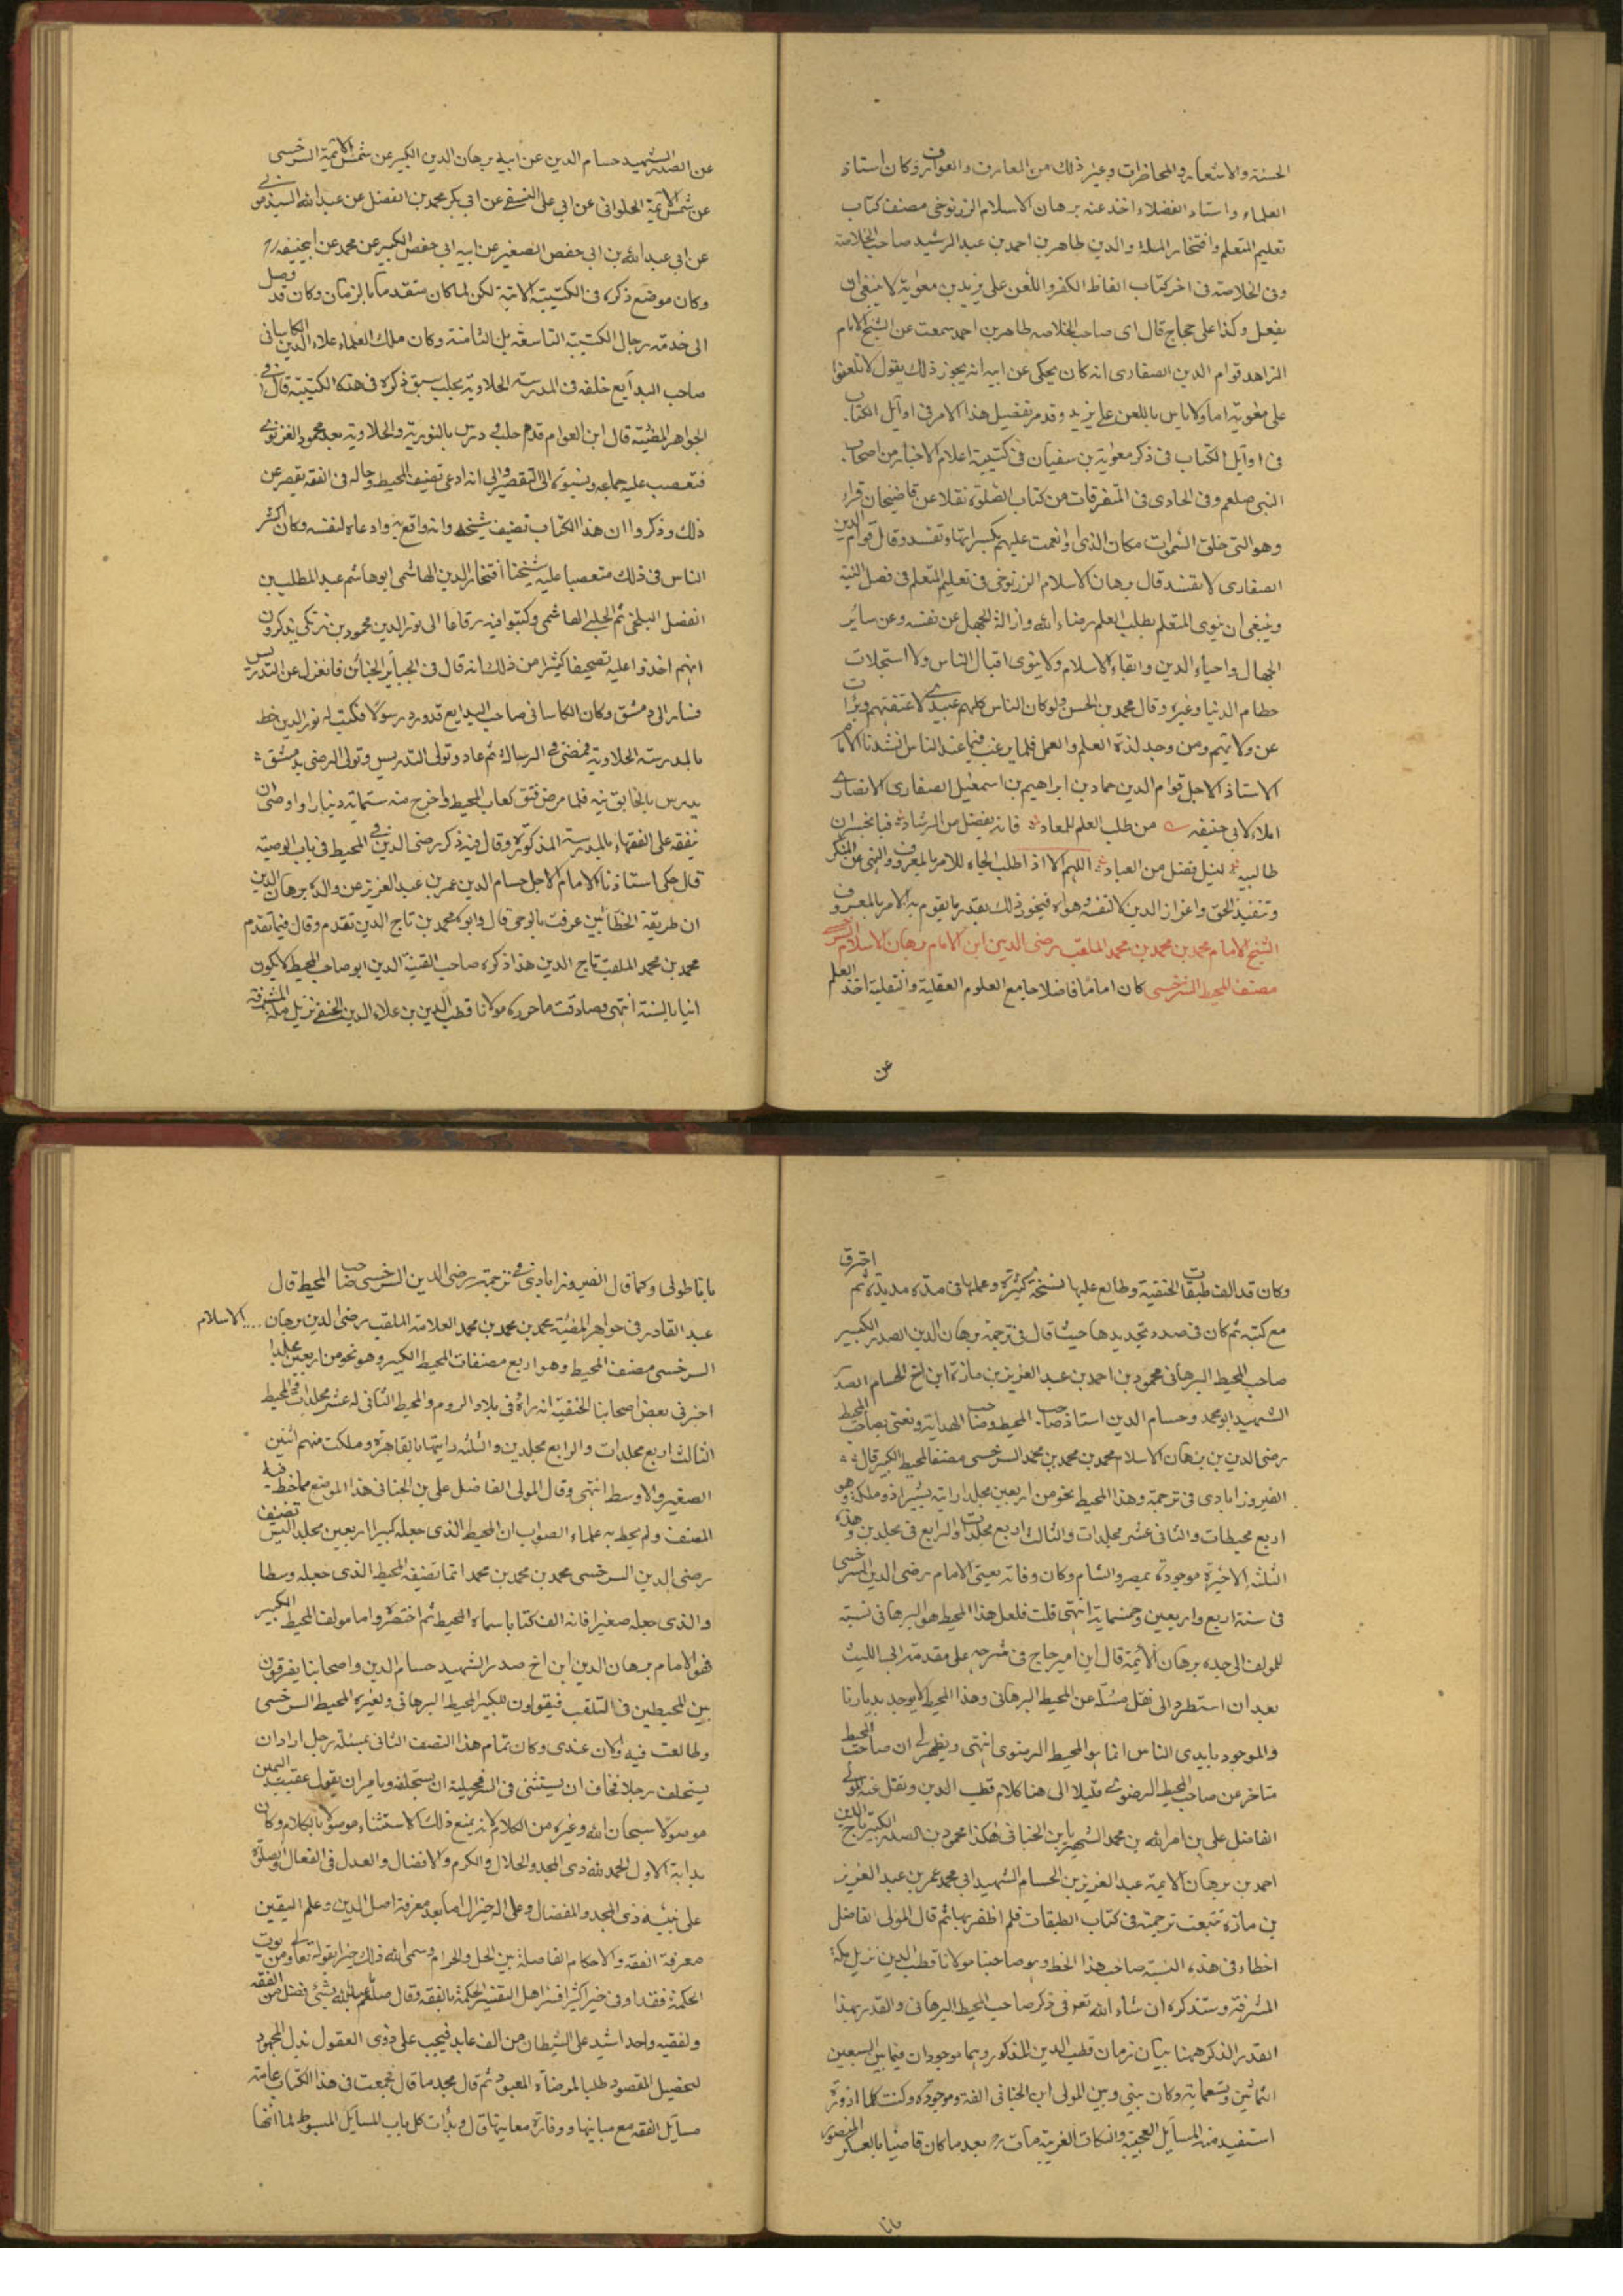 الحسنة والاشعار والمحاظرات وغير ذلك من المعارف والعوارف وكان استاذ
العلماء واستاد الفضلاء اخذ عنه برهان الاسلام الزرنوخي مصنف كتاب
تعليم المتعلم وافتخار الملة والدين طاهر بن احمد بن عبد الرشيد صاحب الخلاصة
وفي الخلاصة في اخر كتاب الفاظ الكفر واللعن على يزيد بن معوية لا ينبغي ان
يفعل وكذا على حجاج قال اى صاحب الخلاصه طاهر بن احمد سمعت عن الشيخ الامام
الزاهد قوام الدين الصفارى انه كان يحكى عن ابيه انه يجوز ذلك يقول لا تلعنوا
على معوية اما ولا باس باللعن على يزيد وقد مر تفصيل هذا الامر في اوايل الكتاب
في اوايل الكتاب في ذكر معوية بن سفيان في كتيبة اعلام الاخيار من اصحاب
النبى صلعم وفي الحادى في المتفرقات من كتاب الصلوة نقلا عن قاضيخان قراء
وهو التى خلق السموات مكان الذى او نعمت عليهم بكسر التاء وتفسد وقال قوام الدين
الصفارى لا تفسد قال برهان الاسلام الزرنوخي في تعليم المتعلم في فصل النية
وينبغى ان ينوى المتعلم بطلب العلم رضاء الله وازالة الجهل عن نفسه وعن ساير
الجهال واحياء الدين وابقاء الاسلام ولا ينوى اقبال الناس ولا استجلاب
حطام الدنيا وغيره وقال محمد بن الحسن ولو كان الناس كلهم عبيدى لاعتقتهم وتبرأت
عن ولائهم ومن وجد لذة العلم والعمل فلما يرغب فيما عند الناس انشدنا الامام
الاستاذ الاجل قوام الدين حماد بن ابراهيم بن اسمعيل الصفارى الانصارى
املاء لابى حنيفه من طلب العلم للمعاد فاز بفضل من الرشاد فيا لخسران
طالبيه لنيل فضل من العباد اللهم الا اذا طلب الجاه للامر بالمعروف والنهى عن المنكر
وتنفيذ الحق واعزاز الدين لا لنفسه وهواه فيجوز ذلك بقدر ما يقوم به الامر بالمعروف
الشيخ الامام محمد بن محمد بن محمد الملقب برضى الدين ابن الامام برهان الاسلام السرخسى
مصنف المحيط السرخسى كان اماما فاضلا جامع العلوم العقلية والنقلية اخذ العلم
عن
عن الصدر الشهيد حسام الدين عن ابيه برهان الدين الكبير عن شمس الائمة السرخسى
عن شمس الائمة الحلوانى عن ابي على النسفى عن ابي بكر محمد بن الفضل عن عبد الله السبذمونى
عن ابي عبد الله بن ابي حفص الصغير عن ابيه ابى حفص الكبير عن محمد عن ابيحنيفه
وكان موضع ذكره في الكتيبة الاتية لكن لما كان متقدما بالزمان وكان قد وصل
الى خدمة رجال الكتيبة التاسعة بل الثامنة وكان ملك العلماء علاء الدين الكاسانى
صاحب البدايع خلفه في المدرسة الحلاوية بحلب سبق ذكره في هذه الكتيبة قال في
الجواهر المضيئة قال ابن العوام قدم حلب ودرس بالنورية والحلاوية بعد محمود الغزنوى
فتعصب عليه جماعه ونسبوه الى التقصير والى انه ادعى تصنيف المحيط وحاله في الفقه يقصر عن
ذلك وذكروا ان هذا الكتاب تصنيف شيخه وانه واقع به وادعاه لنفسه وكان اكثر
الناس في ذلك متعصبا عليه شيخنا افتخار الدين الهاشمى ابو هاشم عبد المطلب بن
الفضل البلخى ثم الحلبى الهاشمى وكتبوا فيه رقاعا الى نور الدين محمود بن زنكى يذكرون
انهم اخذوا عليه تصحيفا كثيرا من ذلك انه قال في الجباير الجنائز فانعزل عن التدريس
فسار الى دمشق وكان الكاسانى صاحب البدايع قد ورد رسولا فكتب له نور الدين خطه
بالمدرسة الحلاوية فمضى في الرسالة ثم عاد وتولى التدريس وتولى الرضى بدمشق
يدرس بالخاتونية فلما مرض فتق كعاب المحيط واخرج منه ستماية دينار واوصى ان
يفقه على الفقهاء بالمدرسة المذكورة وقال فيه ذكر رضى الدين في المحيط في باب الوصية
قال حكى استاذنا الامام الاجل حسام الدين عمر بن عبد العزيز عن والده برهان الدين
ان طريقة الخطائين عرفت بالوحى قال وابوه محمد بن تاج الدين تقدم وقال فيما تقدم
محمد بن محمد الملقب تاج الدين هذا ذكره صاحب القنية الدين ابو صاحب المحيط لا يكون
انيابالسنة انتهى وصادفت ما حرره مولانا قطب الدين بن علاء الدين الحنفى نزيل مكة المشرفة
وكان قد الف طبقات الحنفية وطالع عليها نسخة كثيرة وعملها في مدة مديدة ثم احترق
مع كتبه ثم كان في صدد تجديدها حيث قال في ترجمة برهان الدين الصدر الكبير
صاحب المحيط البرهانى محمود بن احمد بن عبد العزيز بن مازه ابن اخ الحسام الصدر
الشهيد ابو محمد وحسام الدين استاذ صاحب المحيط وصاحب الهداية ونعنى بصاحب المحيط
رضى الدين بن برهان الاسلام محمد بن محمد بن محمد السرخسى مصنف المحيط الكبير قال
الفيروزابادى في ترجمة وهذا المحيط نحو من اربعين مجلدا رايته بشيراز وملكته وهو
اربع محيطات والثانى عشر مجلدات والثالث اربع مجلدات والرابع في مجلدين وهذه
الثلثه الاخيرة موجودة بمصر والشام وكان وفاته يعنى الامام رضى الدين السرخسى
في سنة اربع واربعين وخمسماية انتهى قلت فلعل هذا المحيط هو البرهانى نسبة
للمولف الى جده برهان الائمة قال ابن امير حاج في شرحه على مقدمة ابى الليث
بعد ان استطرد الى نقل مسئلة عن المحيط البرهانى وهذا المحيط لا يوجد بديارنا
والموجود بايدى الناس انما هو المحيط الرضوى انتهى ويظهر لى ان صاحب المحيط
متاخر عن صاحب المحيط الرضوى قليلا الى هنا كلام قطب الدين ونقل عنه المولى
الفاضل على بن امر الله بن محمد الشهير بابن الحنانى هكذا محمود بن الصدر الكبير تاج الدين
احمد بن برهان الايمة عبد العزيز بن الحسام الشهيد ابي محمد عمر بن عبد العزيز
بن مازه تتبعت ترجمته في كتاب الطبقات فلم اظفر بها ثم قال المولى الفاضل
اخطاء في هذه النسبة صاحب هذا الخط وهو صاحبنا مولانا قطب الدين نزيل مكة
المشرفة وستذكره ان شاء الله تعو في ذكر صاحب المحيط البرهانى والقدر بهذا
القدر الذكر ههنا بيان زمان قطب الدين المذكور وهما موجودان فيما بين السبعين
الثمانين وتسعماية وكان بينى وبين المولى ابن الحنانى الفة وموجدة وكنت كلما ازوره
استفيد منه المسايل العجيبة والنكات الغريبة مات بعد ما كان قاضيا بالعسكر المنصور
بانا
باناطولى وكما قال الفيروزابادى في ترجمة رضى الدين السرخسى صاحب المحيط قال
عبد القادر في جواهر المضيئة محمد بن محمد بن محمد العلامة الملقب رضى الدين برهان .... الاسلام
السرخسى مصنف المحيط وهو اربع مصنفات المحيط الكبير وهو نحو من اربعين مجلدا
اخبرنى بعض اصحابنا الحنفية انه راه في بلاد الروم والمحيط الثانى له عشر مجلدات والمحيط
الثالث اربع مجلدات والرابع مجلدين والثلثه رايتها بالقاهرة وملكت منهم اثنين
الصغير والاوسط انتهى وقال المولى الفاضل على بن الحنانى في هذا الموضع مما خط فيه
المصنف ولم يحط به علماء الصواب ان المحيط الذى جعله كبيرا اربعين مجلدا ليس تصنيف
رضى الدين السرخسى محمد بن محمد بن محمد انما تصنيفه المحيط الذى جعله وسطا
والذى جعله صغيرا فانه الف كتابا سماه المحيط ثم اختصره واما مولف المحيط الكبير
فهو الامام برهان الدين ابن اخ صدر الشهيد حسام الدين واصحابنا يفرقون
بين المحيطين في التلقب فيقولون للكبير المحيط البرهانى ولغيره المحيط السرخسى
وطالعت فيه والان عندى وكان تمام هذا النصف الثانى بمسئلة رجل اراد ان
يستحلف رجلا فخاف ان يستثنى في السر فحيلة ان يستحلفه ويامر ان يقول عقيب اليمين
موصولا سبحان الله وغيره من الكلام لانه يمنع ذلك الاستثناء موصولا بالكلام وكان
بداية الاول الحمد لله ذى المجد والجلال والكرم والافضال والعدل في الفعال والصلوة
على نبيه ذى المجد والمفضال وعلى اله خير ال اما بعد معرفة اصل الدين وعلم اليقين
معرفة الفقه والاحكام الفاصلة بين الحل والحرام وسمى الله ذلك خيرا بقوله تعالى ومن يوت
الحكمة فقد اوتى خيرا كثيرا فسر اهل التفسير الحكمة بالفقه وقال صلعم ما عبد الله بشئ افضل من الفقه
ولفقيه واحد اشد على الشيطان من الف عابد فيجب على ذوى العقول بذل المجهود
لتحصيل المقصود طلبا لمرضاة المعبود ثم قال محمد ما قال فجمعت في هذا الكتاب عامة
مسايل الفقه مع مبانيها ووفارة معانيها وبدأت كل باب المسايل المبسوط لما انها